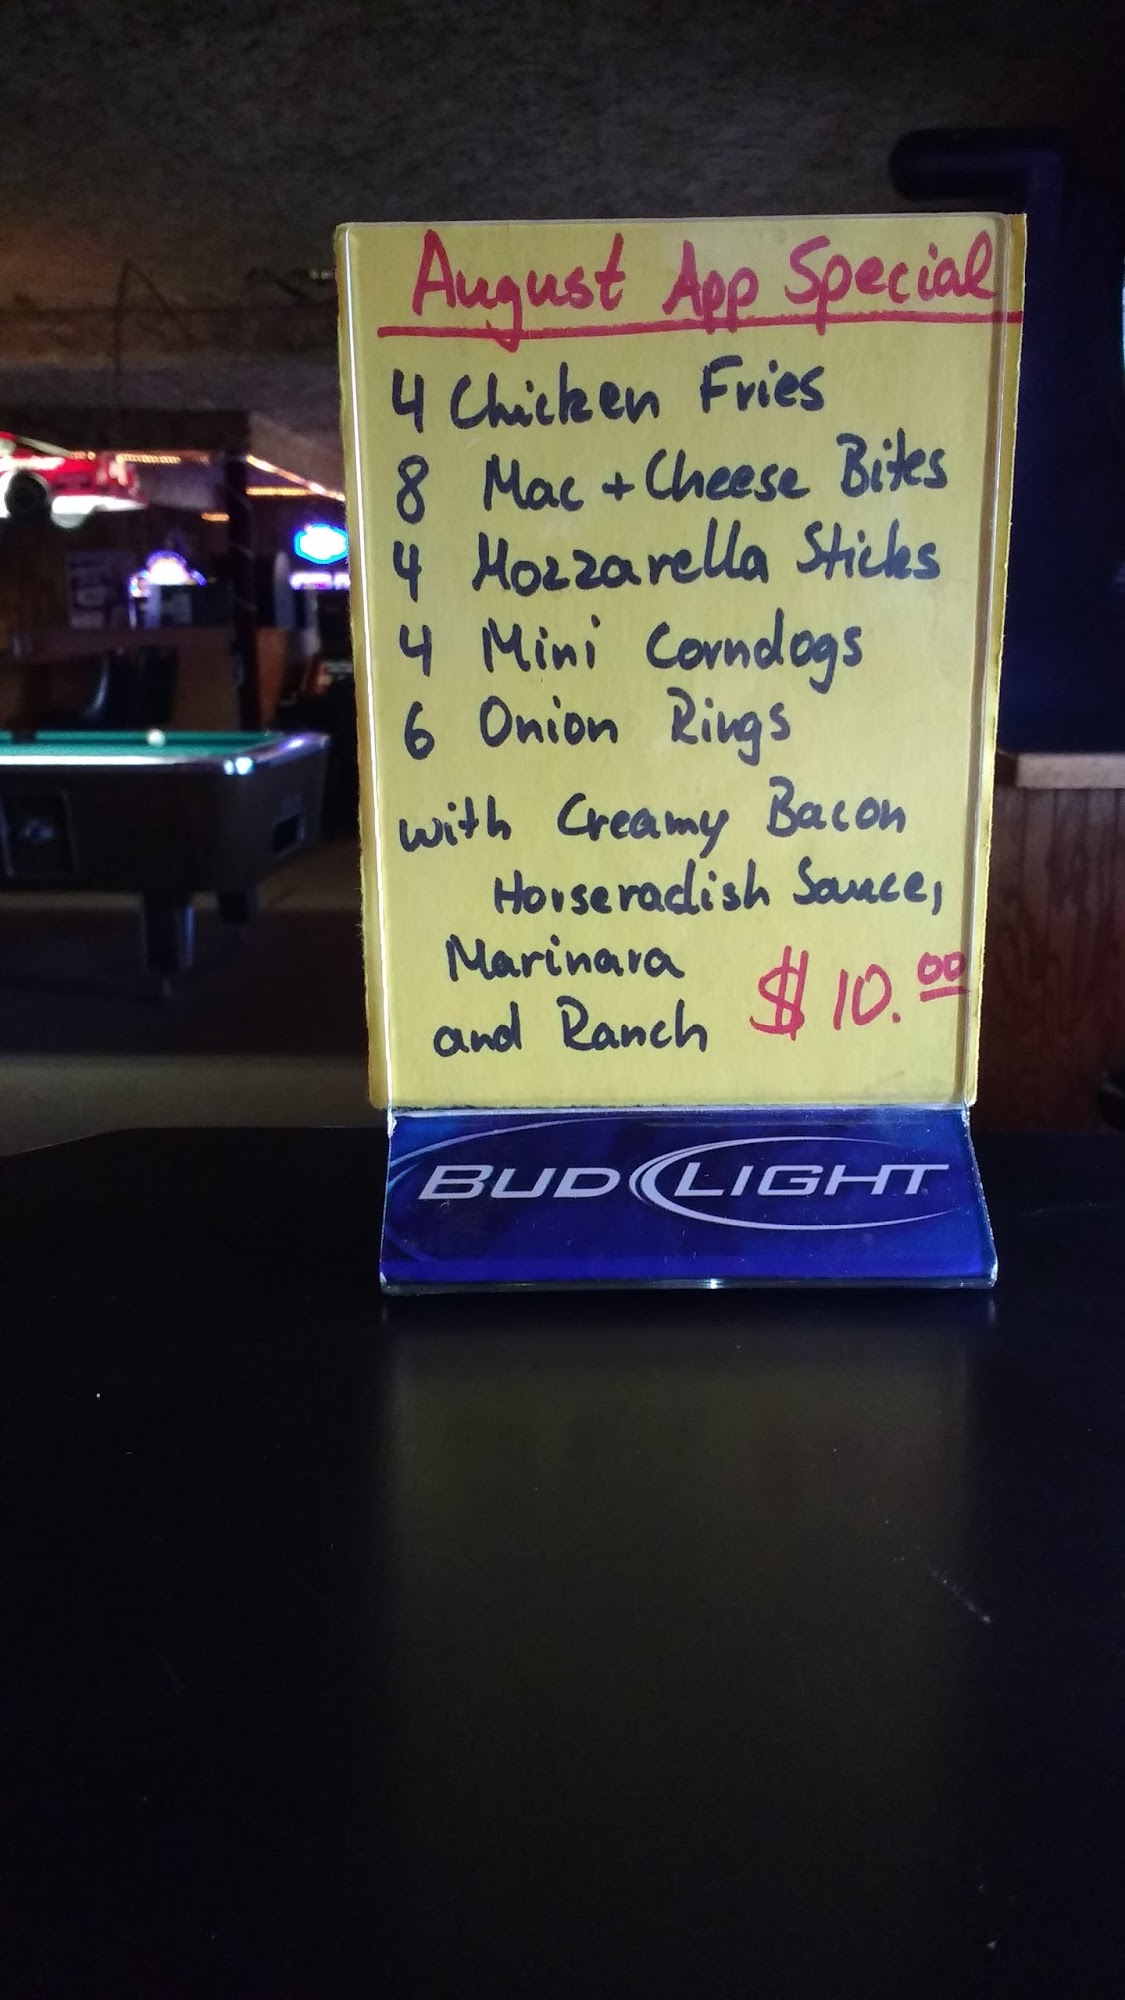 August App Special
4 Chicken Fries
8 Mac + Cheese Bites
4 Mozzarella Sticks
4 Mini Corndogs
6 Onion Rings
with Creamy Bacon
Horseradish Sauce,
Marinara
and Ranch $10.00
BUD LIGHT